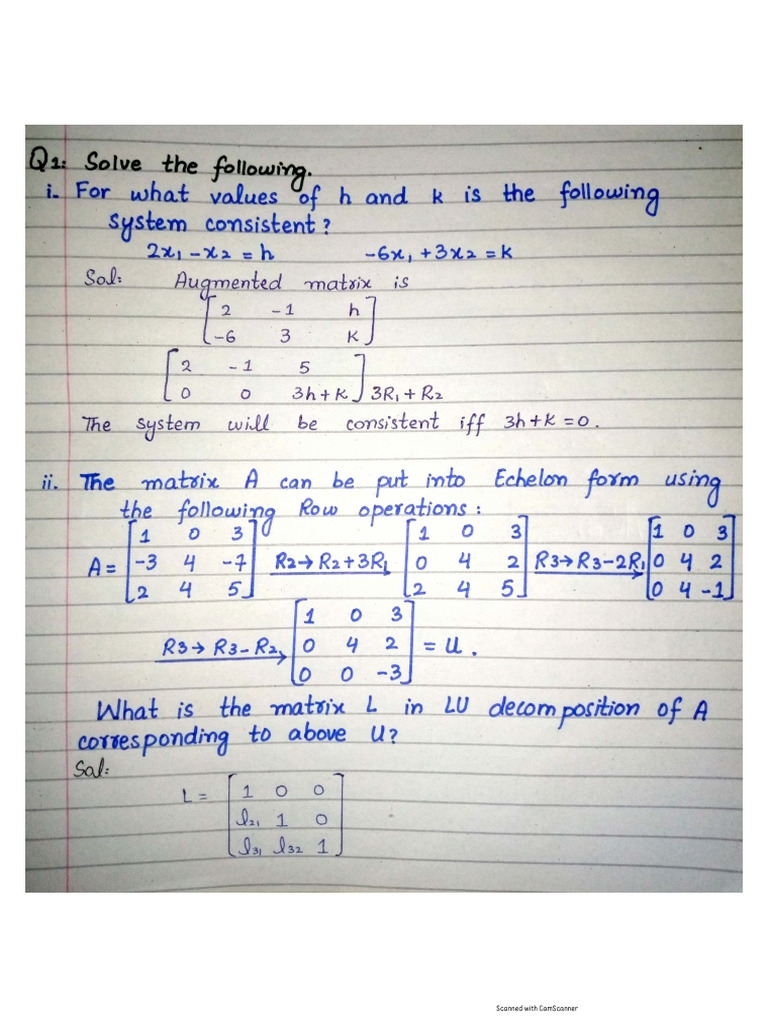 Q1: Solve the following.
i. For what values of h and k is the following
system consistent?
2x₁ - x₂ = h -6x₁ + 3x₂ = k
Sol: Augmented matrix is
[2 -1 h
-6 3 k]
[2 -1 5
0 0 3h+k] 3R₁ + R₂
The system will be consistent iff 3h+k = 0.
ii. The matrix A can be put into Echelon form using
the following Row operations:
A = [1 0 3
-3 4 -7
2 4 5] R2→R2+3R₁ [1 0 3
0 4 2
2 4 5] R3→R3-2R₁ [1 0 3
0 4 2
0 4 -1]
R3→R3-R2 [1 0 3
0 4 2
0 0 -3] = U.
What is the matrix L in LU decomposition of A
corresponding to above U?
Sol:
L = [1 0 0
l₂₁ 1 0
l₃₁ l₃₂ 1]
Scanned with CamScanner